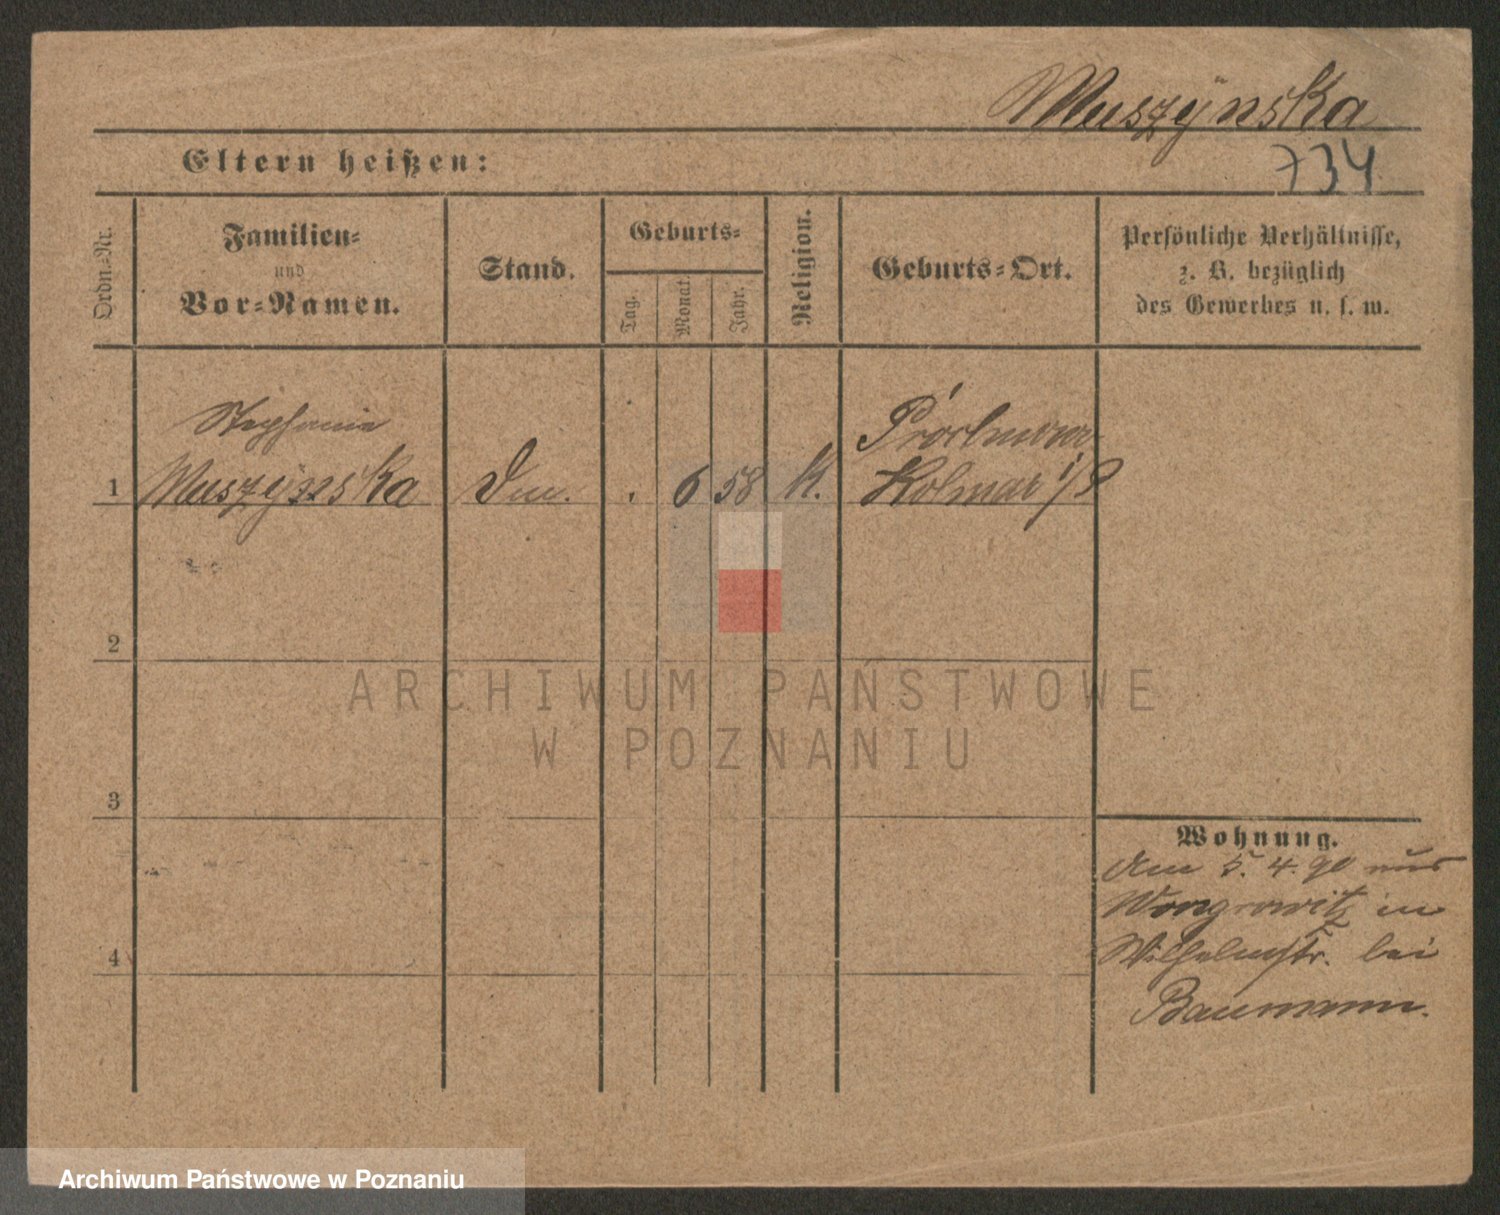 Muszÿnska
Eltern heißen:
734
Ordn.-Nr.
Familien-
und
Vor-Namen.
Stand.
Geburts-
Tag.
Monat.
Jahr.
Religion.
Geburts-Ort.
Persönliche Verhältnisse,
z. B. bezüglich
des Gewerbes u. s. w.
Stephanie
1 Muszÿnska
. 6 58 k.
Kolmar i/P
2
ARCHIWUM PAŃSTWOWE
W POZNANIU
3
Wohnung.
Am 5. 4. 90 aus
Wongrowitz in
Wilhelmstr. bei
4
Baumann.
Archiwum Państwowe w Poznaniu